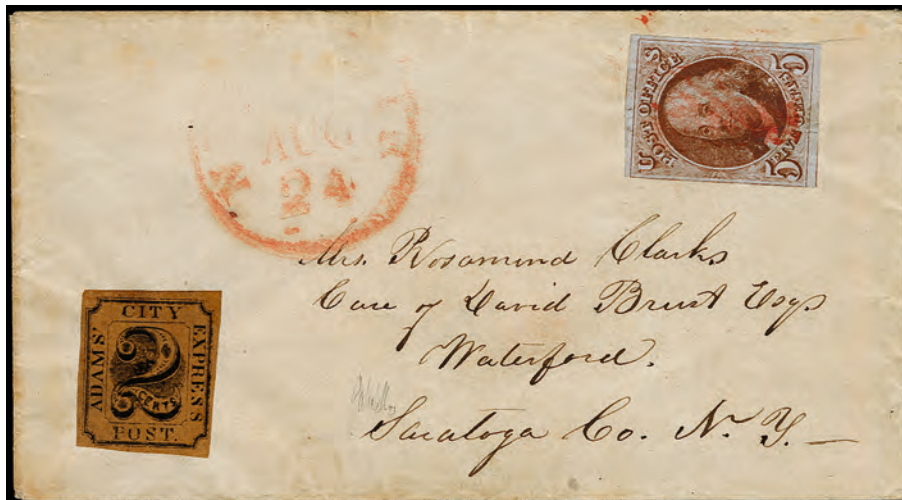 AUG
24
U S
POST OFFICE
5 5
Mrs. Rosamund Clarks
Care of David Brust Esqr
Waterford.
Saratoga Co. N. Y.
ADAMS' CITY EXPRESS POST.
2
CENTS